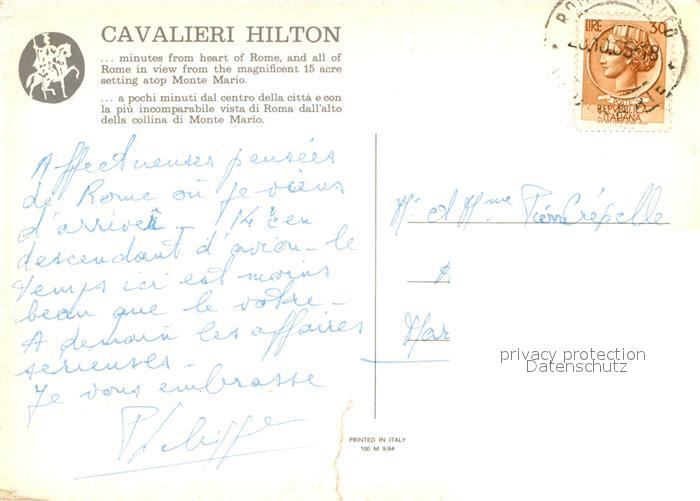 CAVALIERI HILTON
... minutes from heart of Rome, and all of
Rome in view from the magnificent 15 acre
setting atop Monte Mario.
... a pochi minuti dal centro della città e con
la più incomparabile vista di Roma dall'alto
della collina di Monte Mario.
LIRE 30
POSTE
REPUBBLICA
ITALIANA
Affectueuses pensées
de Rome où je viens
d'arriver - 14° en
descendant d'avion - le
temps ici est moins
beau que le votre -
A demain les affaires
sérieuses -
Je vous embrasse
Philippe
Mr et Mme Pierre Crépelle
Mar
privacy protection
Datenschutz
PRINTED IN ITALY
100 M 9/64